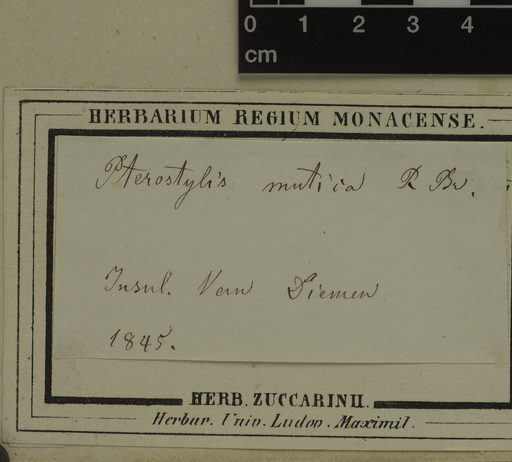 0 1 2 3 4
cm
HERBARIUM REGIUM MONACENSE.
Pterostylis mutica R Br.
Insul. Van Diemen
1845.
HERB. ZUCCARINII.
Herbar. Univ. Ludov. Maximil.